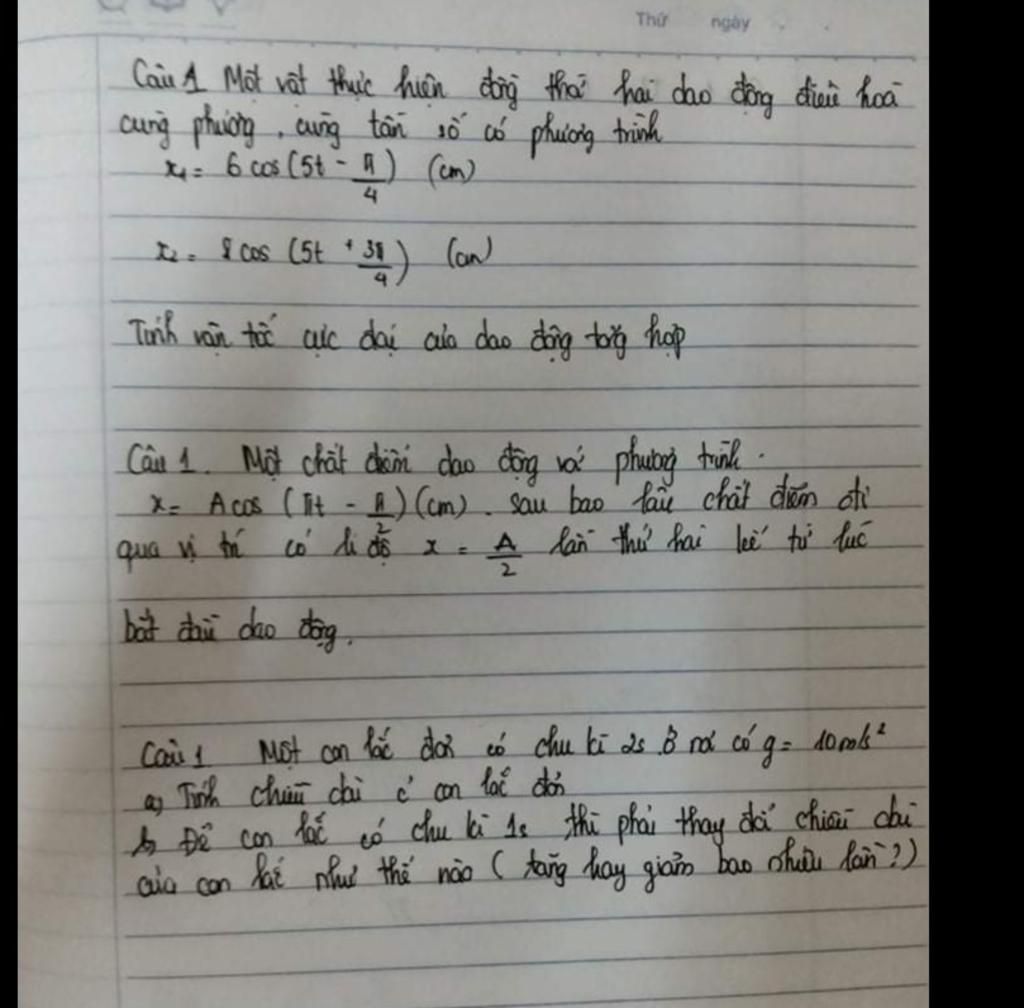 Thứ ngày
Câu 1 Một vật thực hiện đồng thời hai dao động điều hoà
cùng phương, cùng tần số có phương trình
x₁ = 6 cos (5t - π/4) (cm)
x₂ = 8 cos (5t + 3π/4) (cm)
Tính vận tốc cực đại của dao động tổng hợp
Câu 1. Một chất điểm dao động với phương trình.
x = A cos (πt - π/2) (cm). sau bao lâu chất điểm đi
qua vị trí có li độ x = A/2 lần thứ hai kể từ lúc
bắt đầu dao động.
Câu 1 Một con lắc đơn có chu kì 2s ở nơi có g = 10 m/s²
a) Tính chiều dài c' con lắc đơn
b) Để con lắc có chu kì 1s thì phải thay đổi chiều dài
của con lắc như thế nào ( tăng hay giảm bao nhiêu lần?)